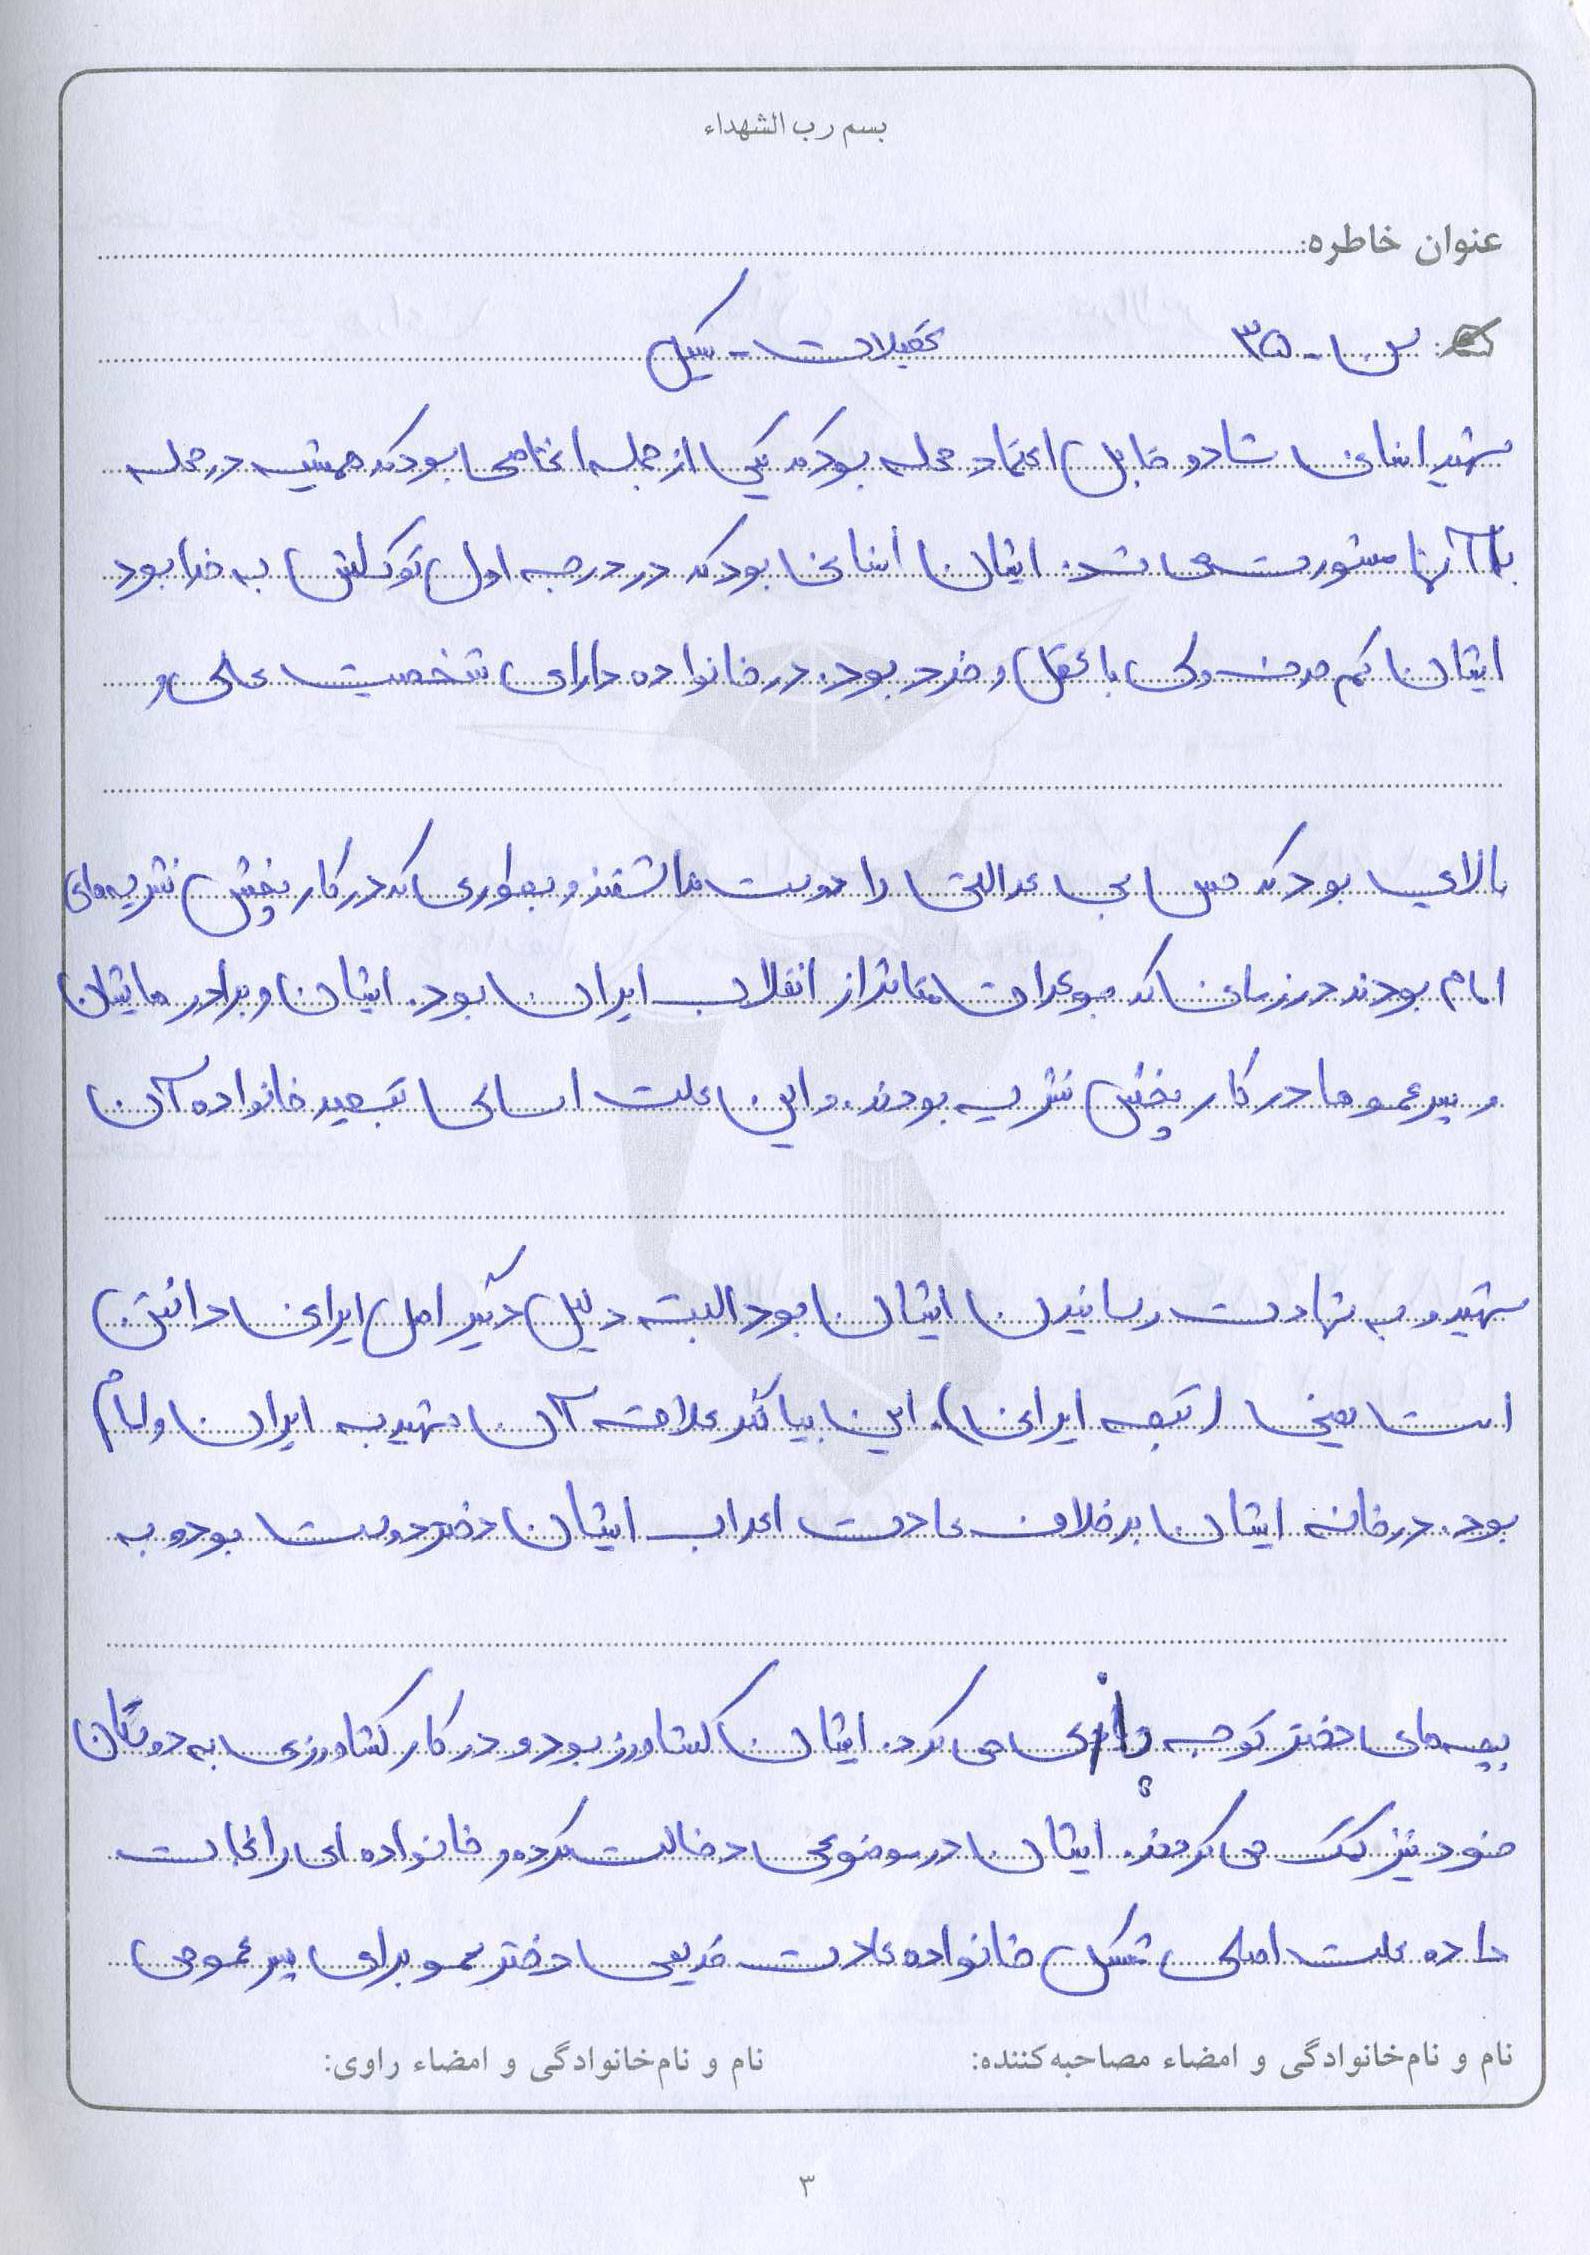 بسم رب الشهداء
عنوان خاطره:
سن - ۳۵ تحصیلات - سیکل
شهید انسانی شاد و قابل اعتماد محله بودند یکی از جمله اشخاصی بودند همیشه در محله
با آنها مشورت می شد. ایشان انسانی بود که در درجه اول توکلش به خدا بود
ایشان کم حرف ولی با عقل و خرد بود. در خانواده دارای شخصیت عالی و
بالایی بود که بی عدالتی را دوست نداشتند و بطوری که در کار پخش نشریه های
امام بودند در زمانی که جو عراق متاثر از انقلاب ایران بود. ایشان و برادر ایشان
و پسر عمو ها در کار پخش نشریه بودند. و این علت اساسی تبعید خانواده آن
شهید و به شهادت رسانیدن ایشان بود البته دلیل دیگر اصل ایرانی داشتن
است یعنی (تبعه ایرانی). این بیانگر علاقه آن شهید به ایران و امام
بود. در خانه ایشان برخلاف عادت اعراب ایشان دختر دوست بود و به
بچه های دختر توجه می کرد. ایشان کشاورز بود و در کار کشاورزی به دوستان
خود نیز کمک می کردند. ایشان در موضوعی دخالت کرده و خانواده ای را نجات
داده علت اصلی مشکل خانواده عادت قدیمی دختر عمو برای پسر عمو می
نام و نام‌خانوادگی و امضاء مصاحبه‌کننده: نام و نام‌خانوادگی و امضاء راوی:
۳